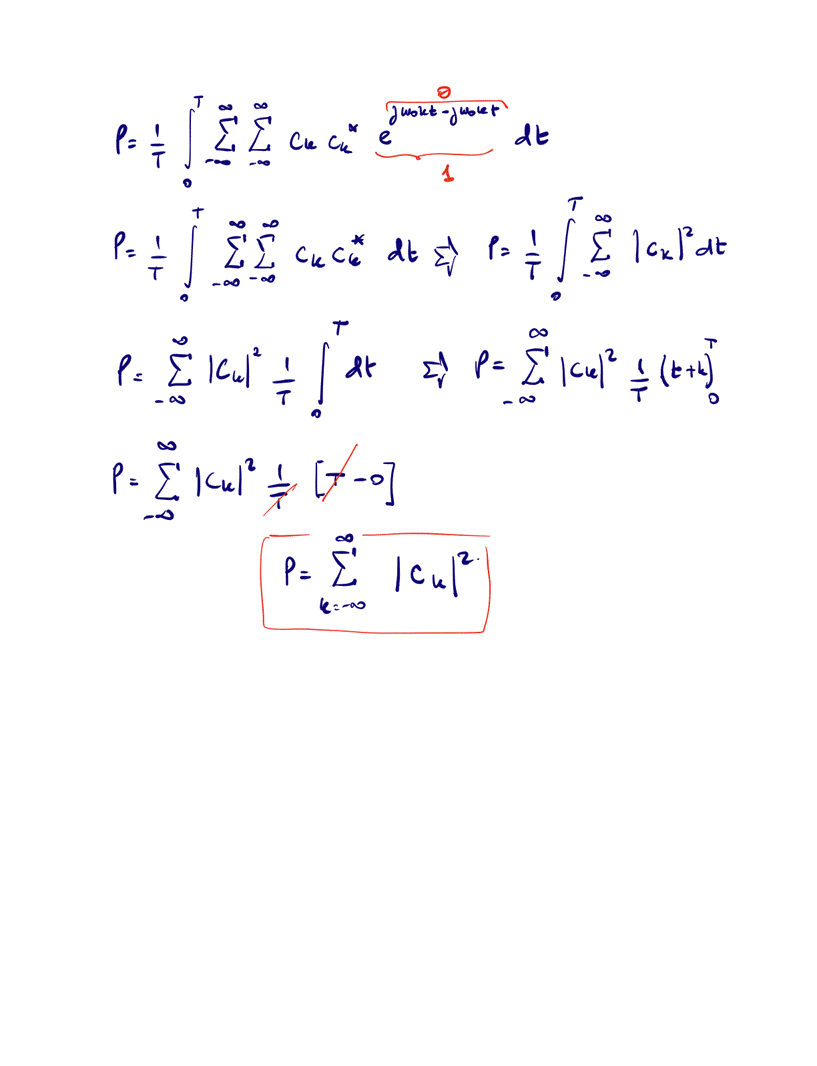 0
P = 1/T ∫₀ᵀ ∑_{-∞}^{∞} ∑_{-∞}^{∞} C_k C_k^* e^{jw₀kt - jw₀kt} dt
1
P = 1/T ∫₀ᵀ ∑_{-∞}^{∞} ∑_{-∞}^{∞} C_k C_k^* dt ⇒ P = 1/T ∫₀ᵀ ∑_{-∞}^{∞} |C_k|² dt
P = ∑_{-∞}^{∞} |C_k|² 1/T ∫₀ᵀ dt ⇒ P = ∑_{-∞}^{∞} |C_k|² 1/T (t+k)₀ᵀ
P = ∑_{-∞}^{∞} |C_k|² 1/T [T - 0]
P = ∑_{k=-∞}^{∞} |C_k|².